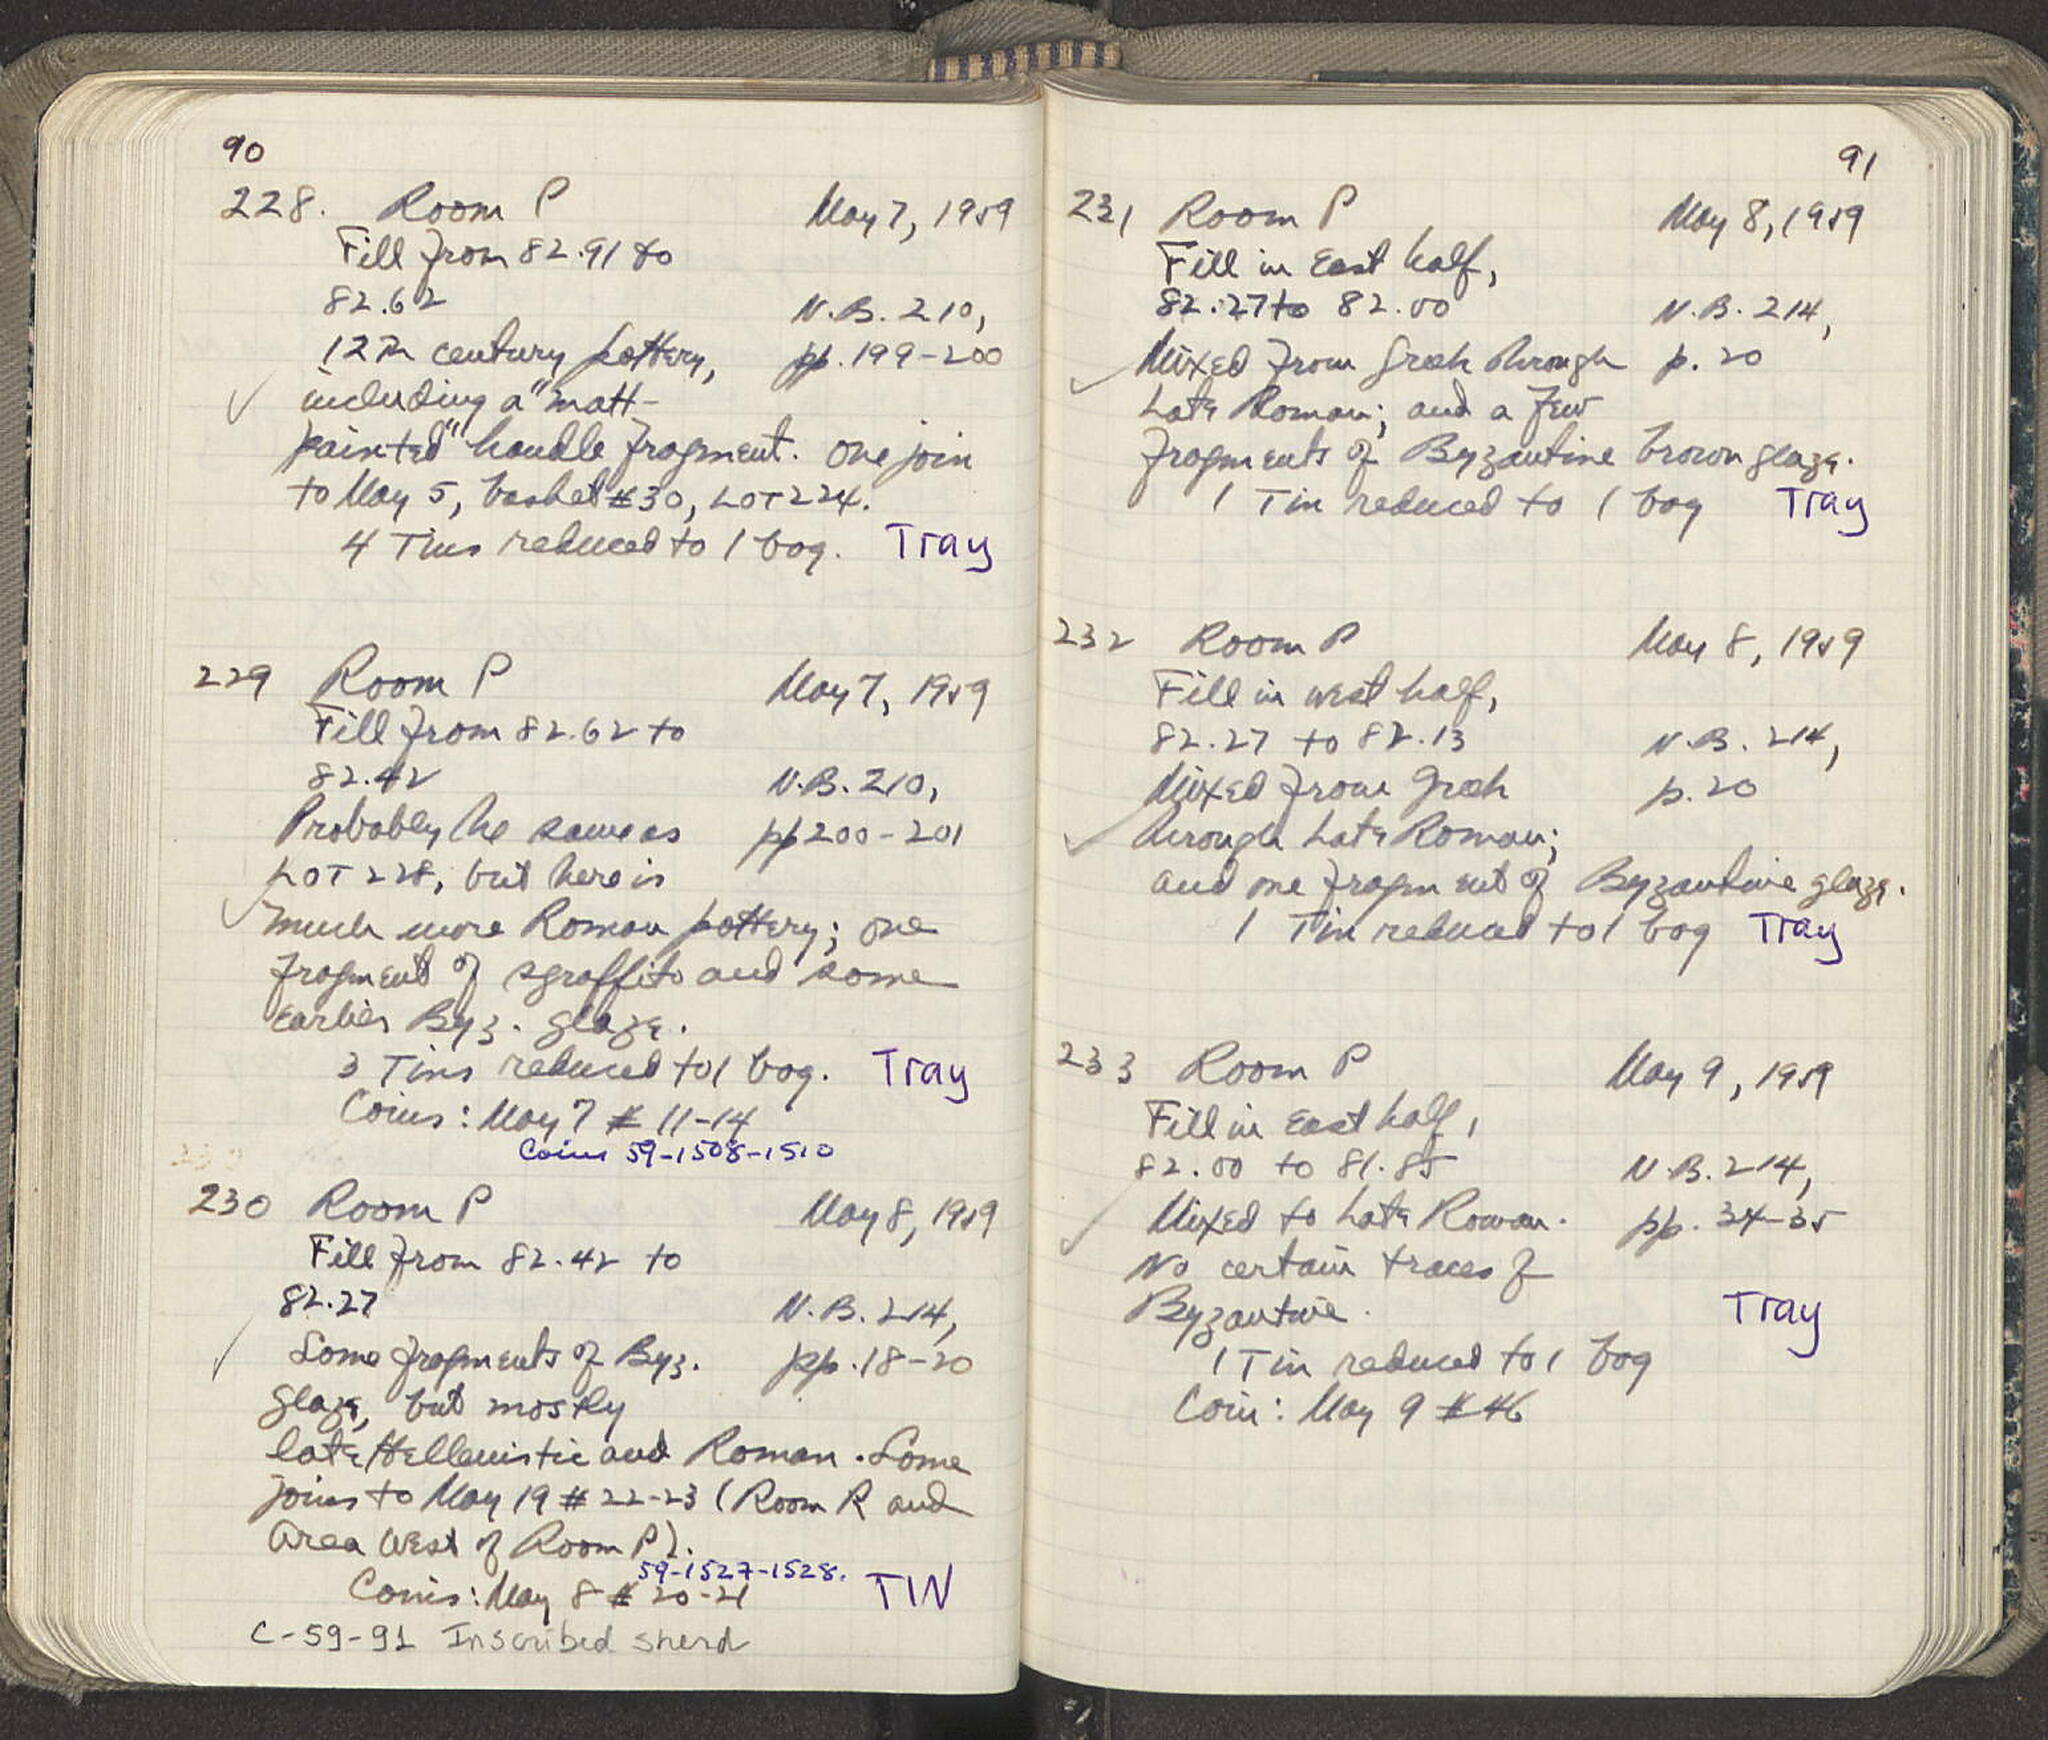 90
228. Room P May 7, 1959
Fill from 82.91 to
82.62 N.B. 210,
12th century pottery, pp. 199-200
including a "matt-
painted" handle fragment. One join
to May 5, basket #30, LOT 224.
4 Tins reduced to 1 bag. Tray
229 Room P May 7, 1959
Fill from 82.62 to
82.42 N.B. 210,
Probably the same as pp 200-201
LOT 228, but there is
much more Roman pottery; one
fragment of sgraffito and some
earlier Byz. glaze.
3 Tins reduced to 1 bag. Tray
Coins: May 7 # 11-14
Coins 59-1508-1510
230 Room P May 8, 1959
Fill from 82.42 to
82.27 N.B. 214,
Some fragments of Byz. pp. 18-20
glaze, but mostly
late Hellenistic and Roman. Some
joins to May 19 # 22-23 (Room R and
Area West of Room P).
59-1527-1528.
Coins: May 8 # 20-21 TIN
C-59-91 Inscribed sherd
91
231 Room P May 8, 1959
Fill in East half,
82.27 to 82.00 N.B. 214,
Mixed from Greek through p. 20
Late Roman; and a few
fragments of Byzantine brown glaze.
1 Tin reduced to 1 bag Tray
232 Room P May 8, 1959
Fill in west half,
82.27 to 82.13 N.B. 214,
Mixed from Greek p. 20
through Late Roman;
and one fragment of Byzantine glaze.
1 Tin reduced to 1 bag Tray
233 Room P May 9, 1959
Fill in East half,
82.00 to 81.85 N.B. 214,
Mixed to Late Roman. pp. 34-35
No certain traces of
Byzantine. Tray
1 Tin reduced to 1 bag
Coin: May 9 #46